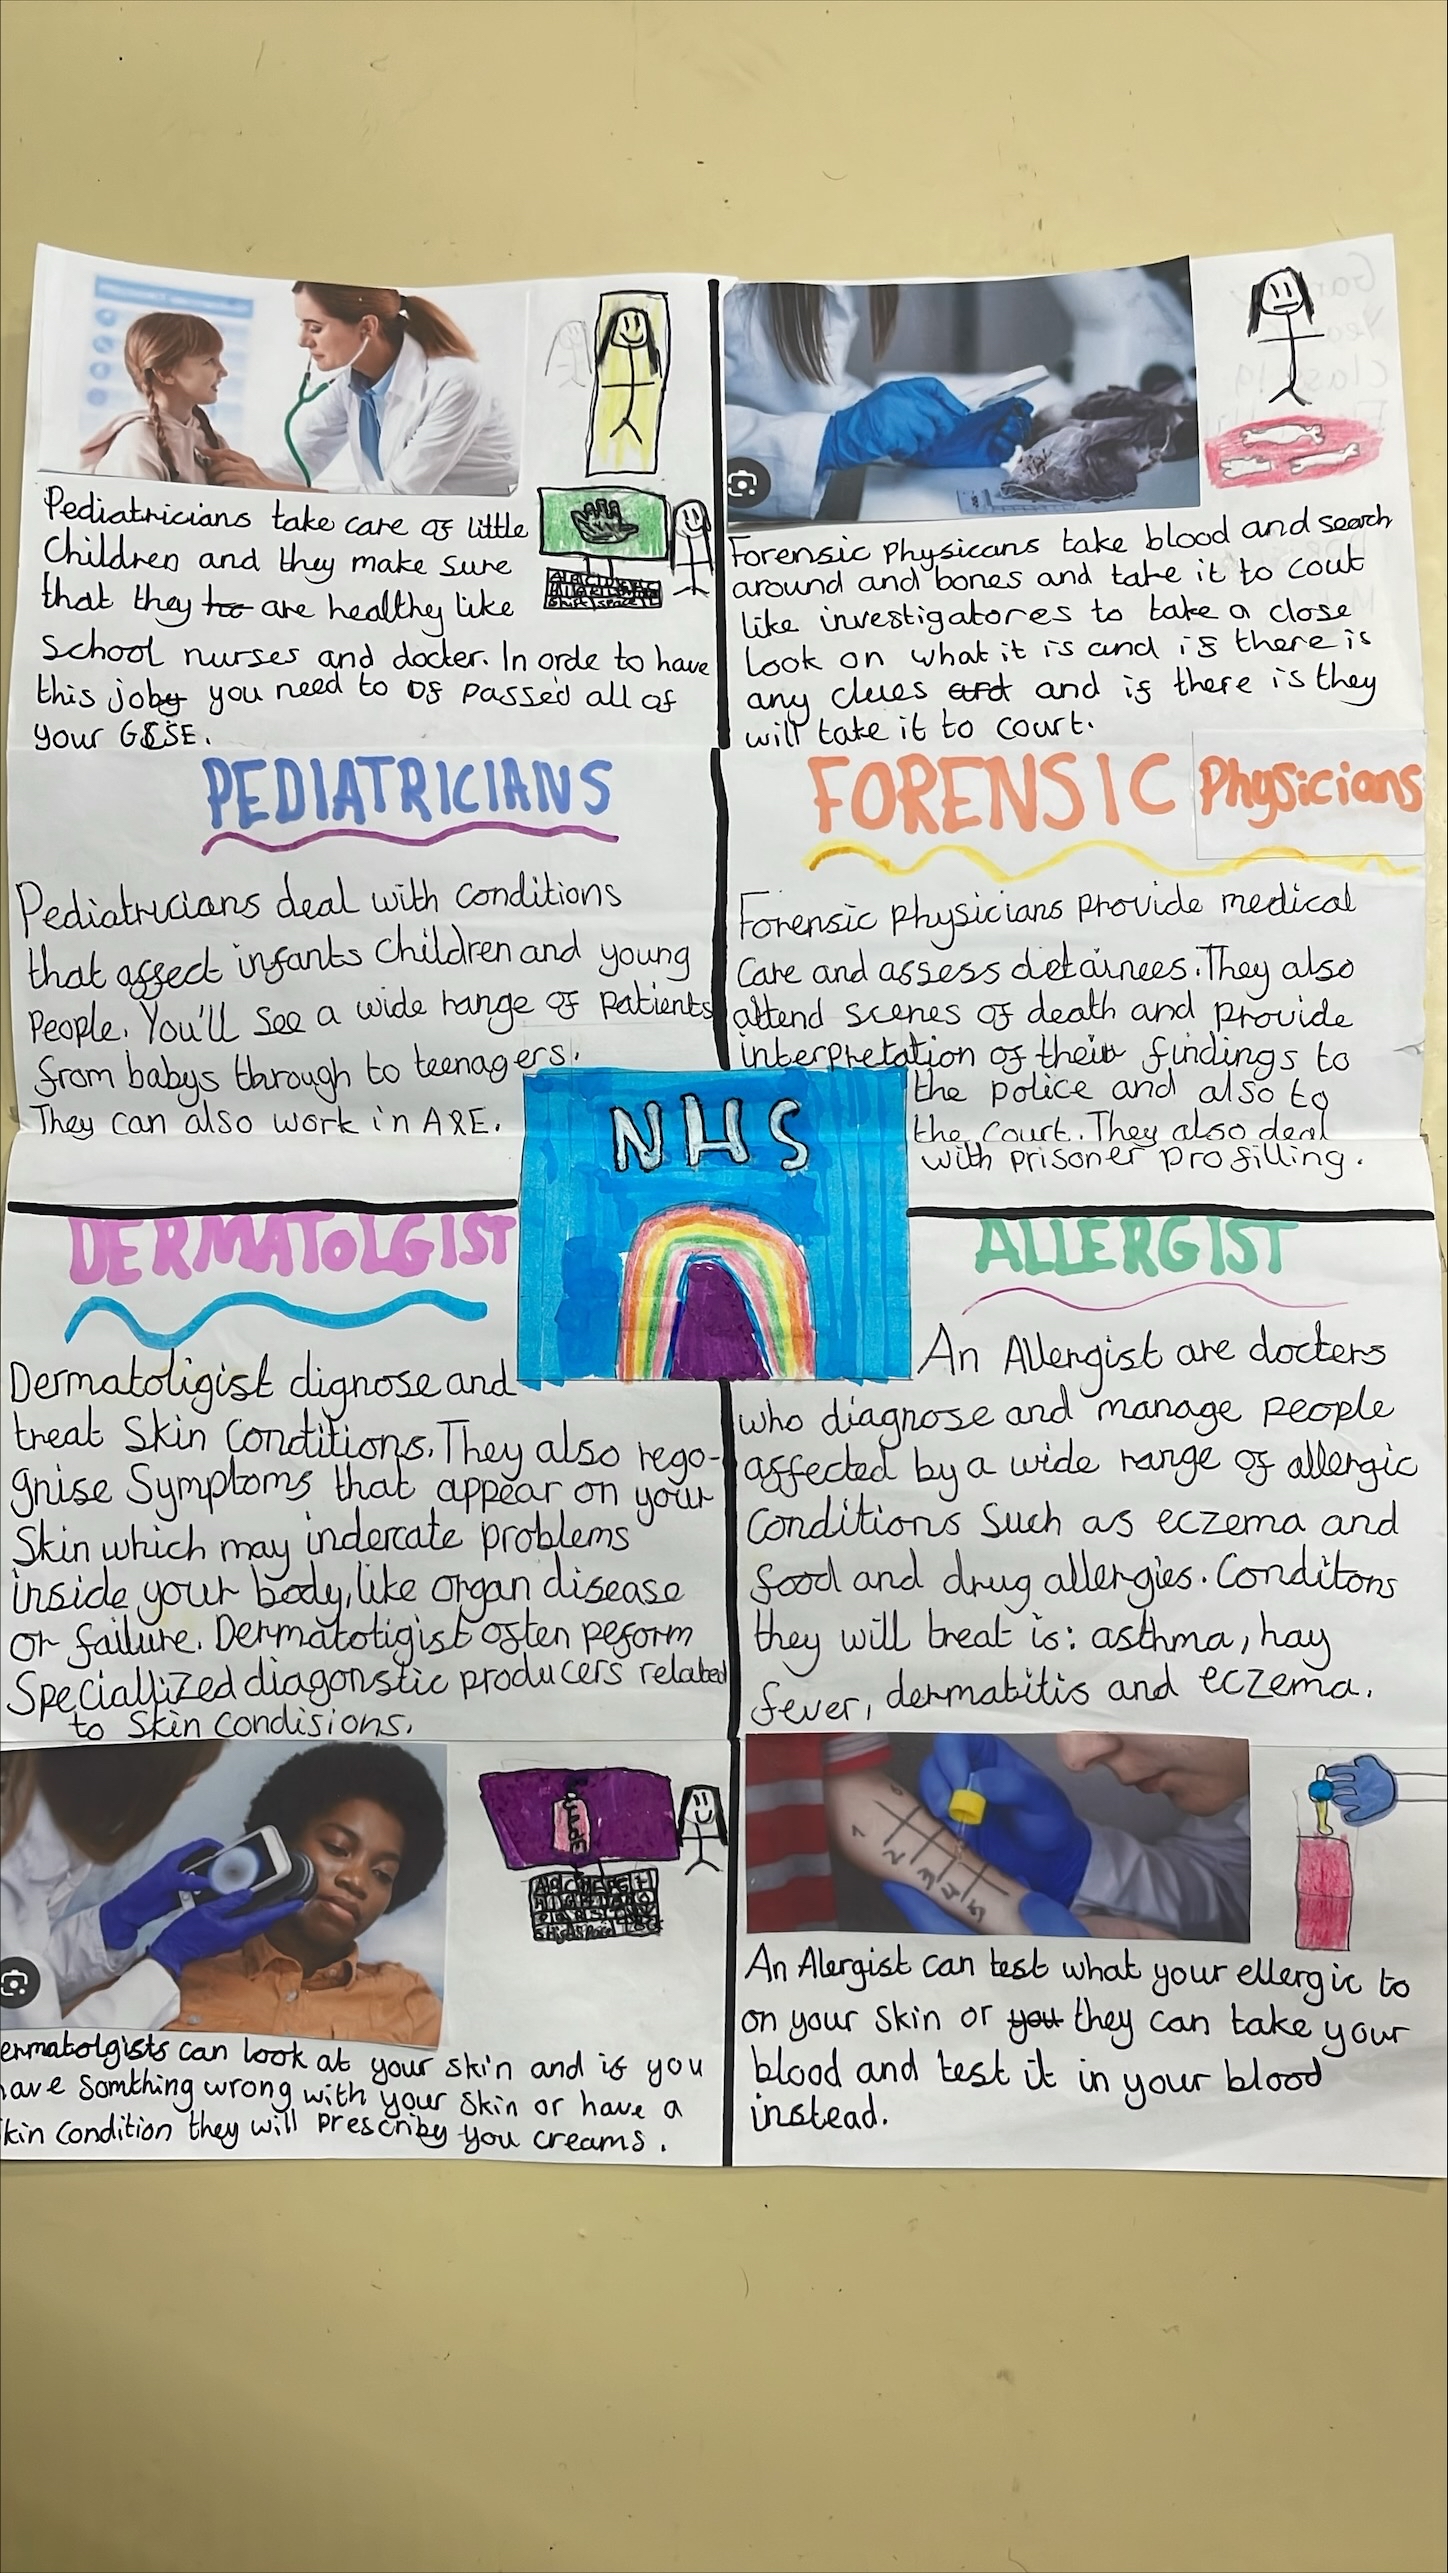 Pediatricians take care of little
Children and they make sure
that they too are healthy like
School nurses and docter. In orde to have
this joby you need to of passed all of
your GSSE.
PEDIATRICIANS
Pediatricians deal with conditions
that affect infants Children and young
People. You'll See a wide range of Patients
from babys through to teenagers.
They can also work in A&E.
Forensic Physicans take blood and search
around and bones and take it to cout
like investigatores to take a close
Look on what it is and if there is
any clues and and if there is they
will take it to court.
FORENSIC Physicians
Forensic physicians provide medical
Care and assess detainees. They also
attend scenes of death and provide
interpretation of their findings to
the police and also to
the court. They also deal
with prisoner profilling.
NHS
DERMATOLGIST
Dermatoligist dignose and
treat Skin Conditions. They also rego-
gnise Symptoms that appear on your
Skin which may indercate problems
inside your body, like organ disease
or failure. Dermatotigist often peform
Speciallized diagonstic producers related
to Skin Condisions.
ermatolgists can look at your skin and if you
ave Somthing wrong with your Skin or have a
kin Condition they will Prescriby you creams.
ALLERGIST
An Allergist are docters
who diagnose and manage people
affected by a wide range of allergic
Conditions Such as eczema and
food and drug allergies. Conditons
they will treat is: asthma, hay
fever, dermatitis and eczema.
An Alergist can test what your ellergic to
on your Skin or you they can take your
blood and test it in your blood
instead.